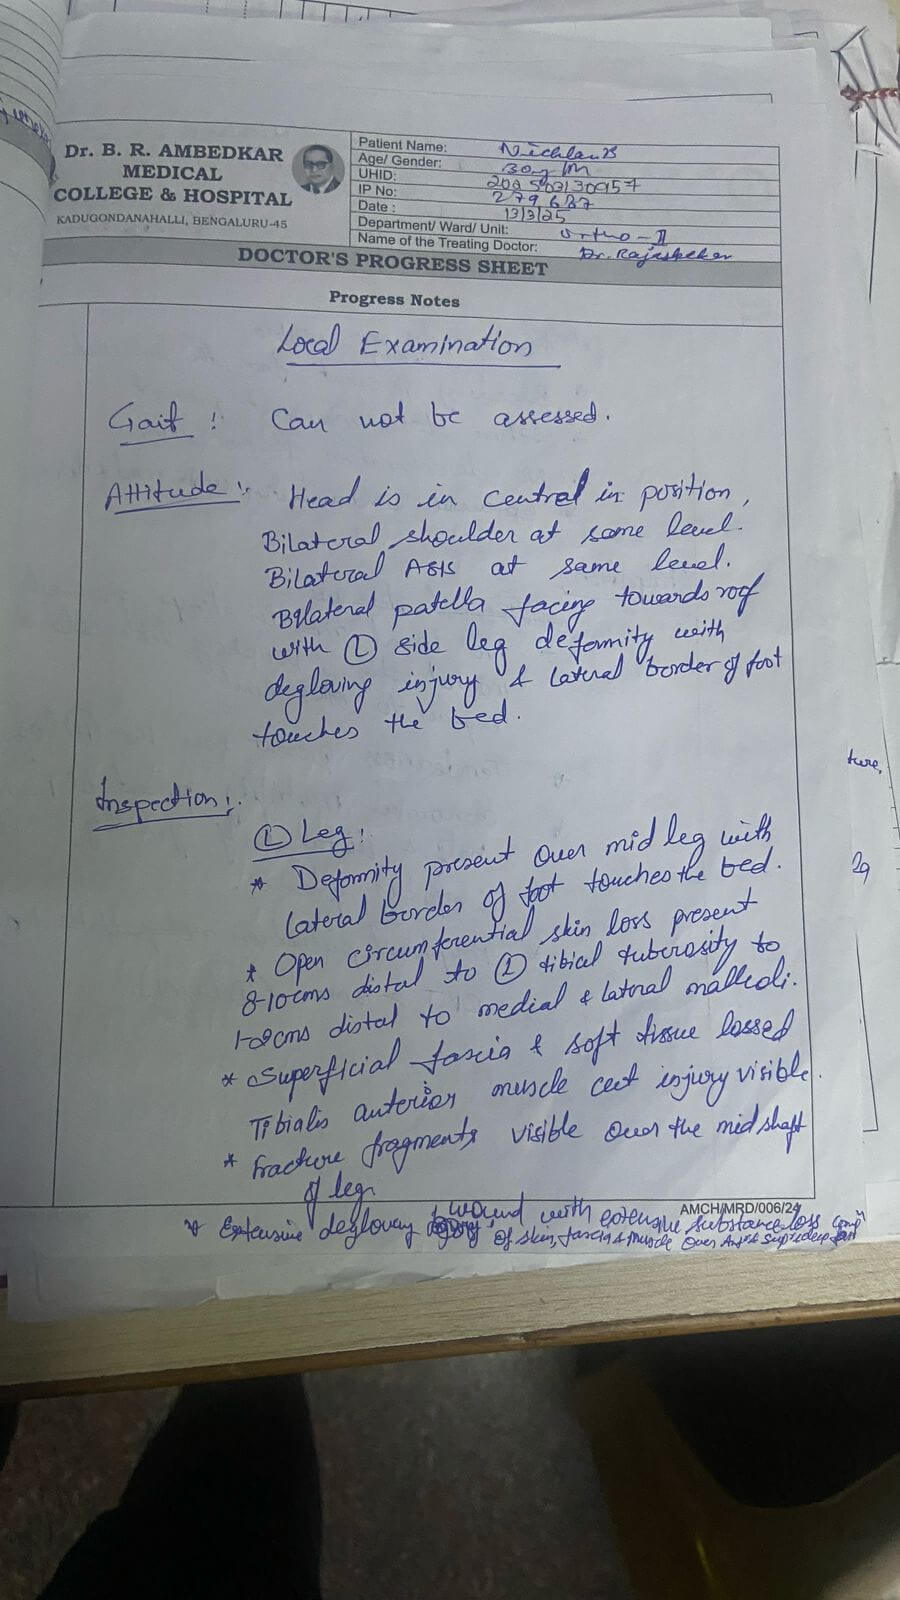 Dr. B. R. AMBEDKAR
MEDICAL
COLLEGE & HOSPITAL
KADUGONDANAHALLI, BENGALURU-45
Patient Name:
Age/ Gender: 30y M
UHID: 202503130957
IP No: 279687
Date : 13/3/25
Department/ Ward/ Unit: Ortho-II
Name of the Treating Doctor: Dr. Rajashekar
DOCTOR'S PROGRESS SHEET
Progress Notes
Local Examination
Gait : Can not be assessed.
Attitude :- Head is in central in position,
Bilateral shoulder at same level.
Bilateral ASIS at same level.
Bilateral patella facing towards roof
with Ⓛ side leg deformity with
degloving injury & lateral border of foot
touches the bed.
Inspection :-
Ⓛ Leg :
* Deformity present over mid leg with
lateral border of foot touches the bed.
* Open circumferential skin loss present
8-10cms distal to Ⓛ tibial tuberosity to
1-2cms distal to medial & lateral malleoli.
* Superficial fascia & soft tissue lossed
Tibialis anterior muscle cut injury visible.
* Fracture fragments visible over the mid shaft
of leg.
AMCH/MRD/006/24
* Extensive wound with extensive substance loss
of skin, fascia & muscle over
ture,